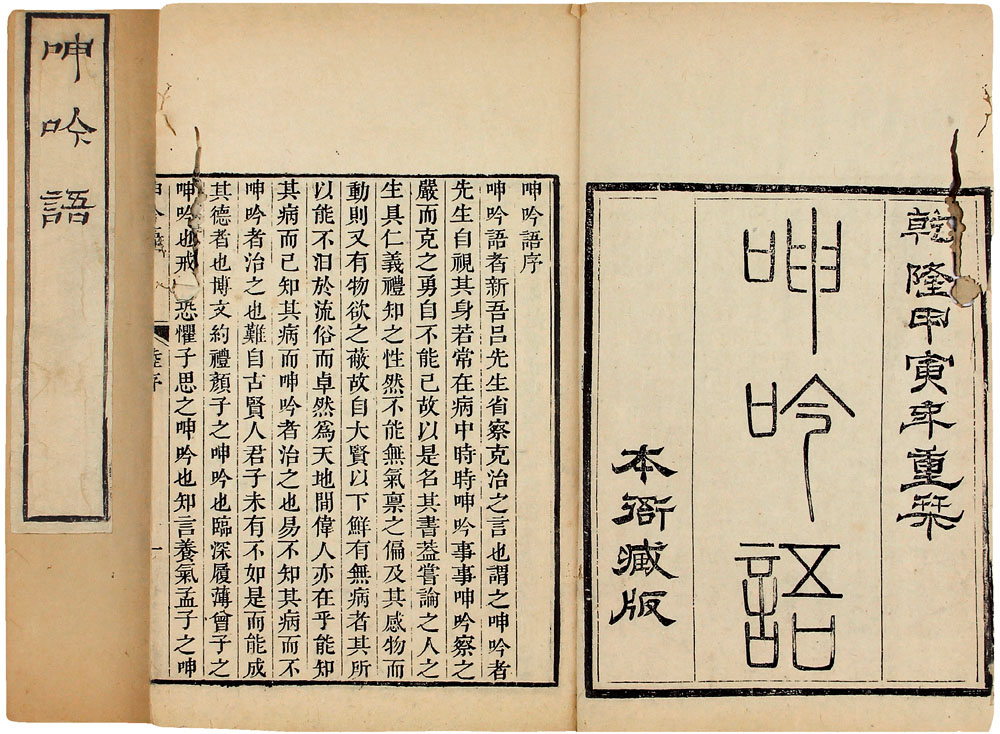 乾隆甲寅年重栞
呻吟語
本衙藏版
呻吟語序
呻吟語者新吾呂先生省察克治之言也謂之呻吟者
先生自視其身若常在病中時時呻吟事事呻吟察之
嚴而克之勇自不能已故以是名其書葢嘗論之人之
生具仁義禮知之性然不能無氣禀之偏及其感物而
動則又有物欲之蔽故自大賢以下鮮有無病者其所
以能不汩於流俗而卓然爲天地間偉人亦在乎能知
其病而已知其病而呻吟者治之也易不知其病而不
呻吟者治之也難自古賢人君子未有不如是而能成
其德者也博文約禮顏子之呻吟也臨深履薄曾子之
呻吟也戒恐懼子思之呻吟也知言養氣孟子之呻
序
一
呻吟語